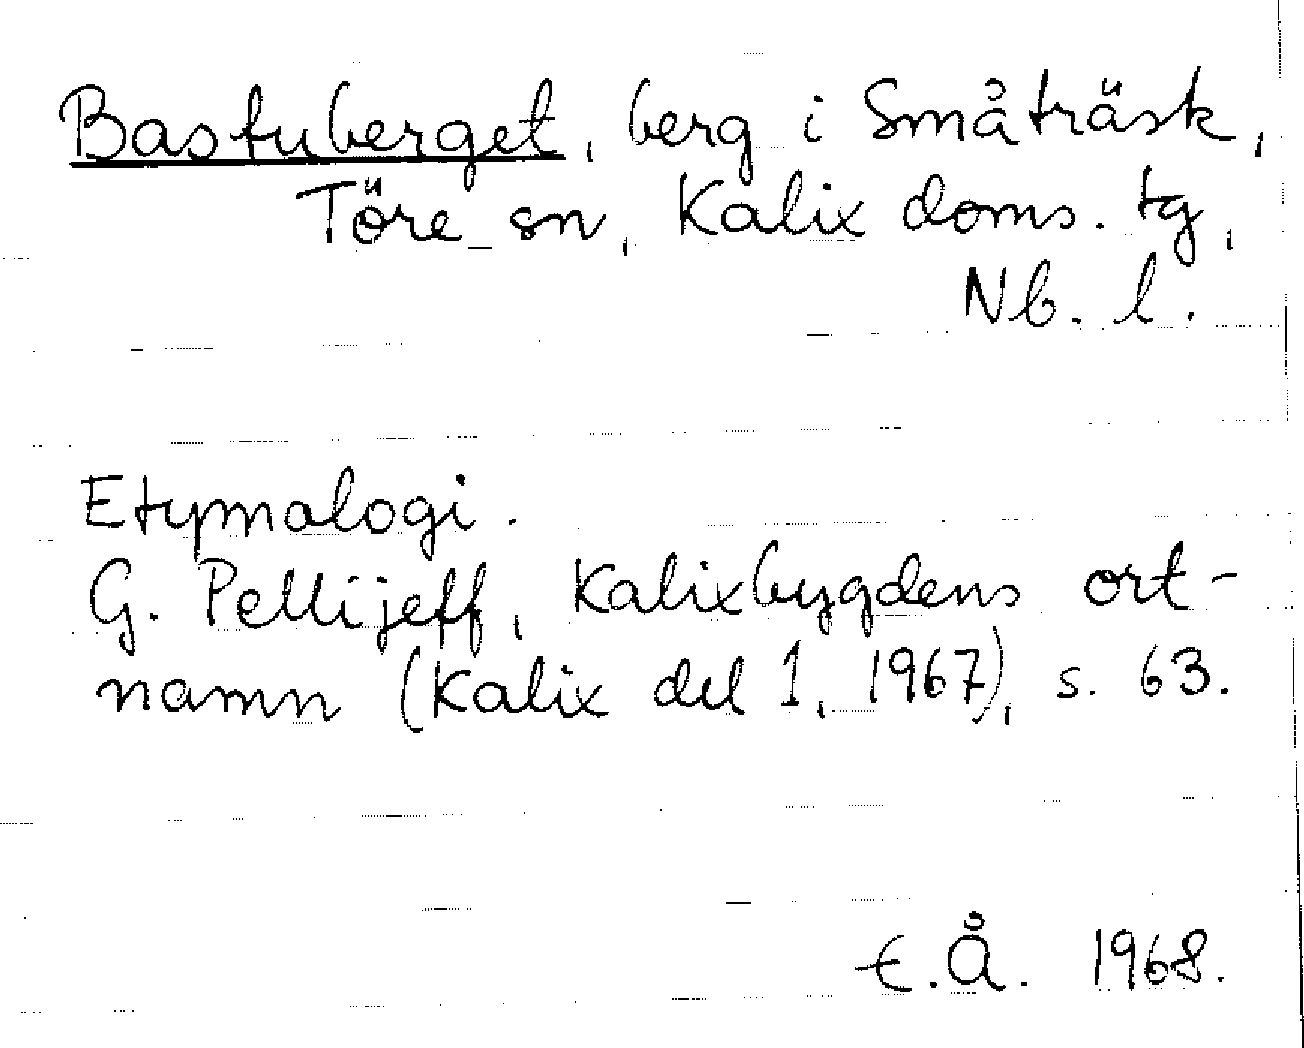 Bastuberget, berg i Småträsk,
Töre sn, Kalix doms. tg,
Nb. l.
Etymologi.
G. Pellijeff, Kalixbygdens ort-
namn (Kalix del 1, 1967), s. 63.
E.Å. 1968.